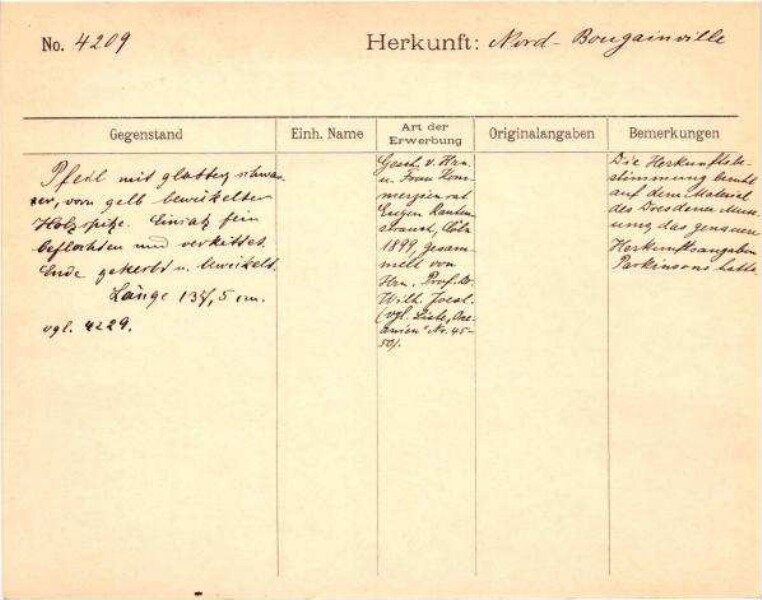 No. 4209
Herkunft: Nord-Bougainville
Gegenstand
Einh. Name
Art der Erwerbung
Originalangaben
Bemerkungen
Pfeil mit glatter, schwar-
zer, vorn gelb bewickelter
Holzspitze. Einsatz fein
beflochten und verkittet.
Ende gekerbt u. bewickelt.
Länge 137,5 cm.
vgl. 4229.
Gesch. v. Hrn.
u. Frau Kom-
merzienrat
Eugen Rauten-
strauch, Cöln
1899, gesam-
melt von
Hrn. Prof. Dr.
Wilh. Joest.
(vgl. Liste „Oze-
anien" Nr. 45-
50).
Die Herkunftsbe-
stimmung beruht
auf dem Material
des Dresdener Mus.,
das genauere
Herkunftsangaben
Parkinsons hatte